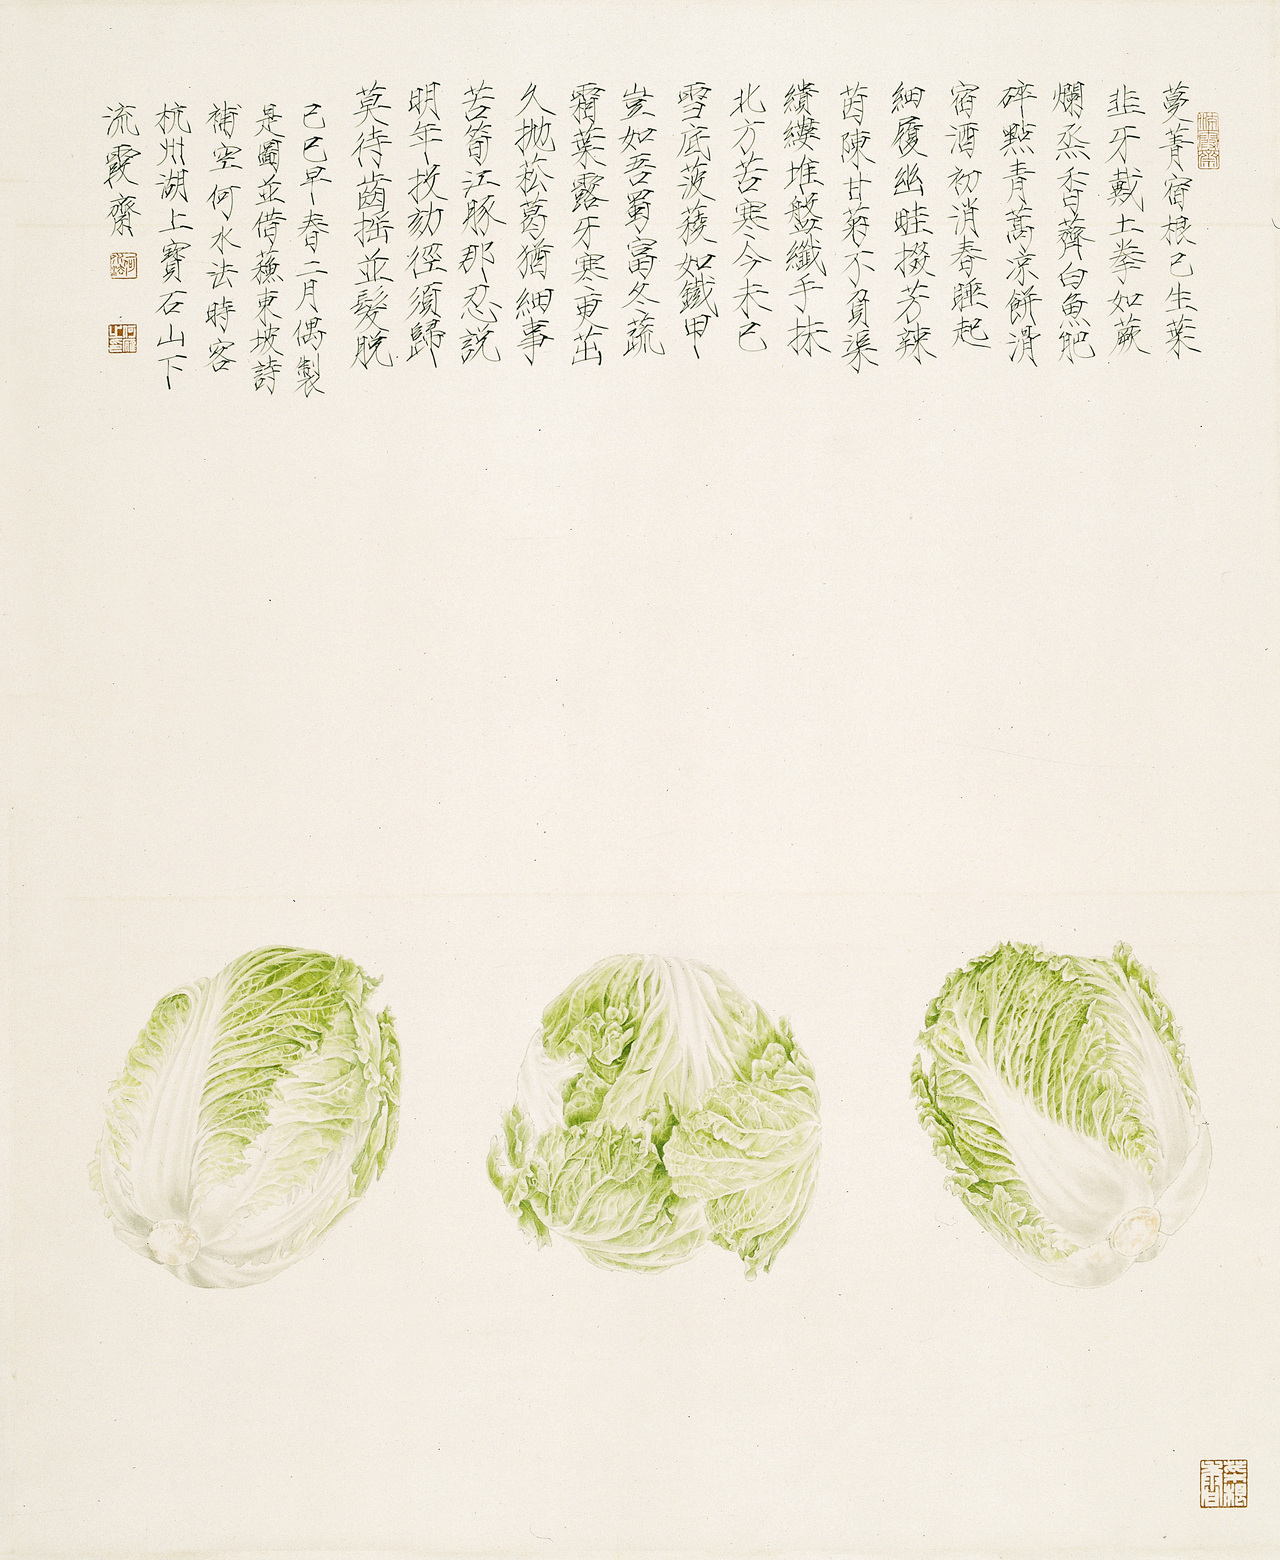 流霞齋
蔓菁宿根已生葉
韭牙戴土拳如蕨
爛烝香薺白魚肥
碎點青蒿凉餅滑
宿酒初消春睡起
細履幽畦掇芳辣
茵陳甘菊不負渠
繢縷堆盤纖手抹
北方苦寒今未已
雪底菠薐如鐵甲
豈如吾蜀富冬蔬
霜葉露牙寒更茁
久拋菘葛猶細事
苦筍江豚那忍説
明年投劾徑須歸
莫待齒摇並髮脱
己巳早春二月偶製
是圖並借蘇東坡詩
補空何水法時客
杭州湖上寶石山下
流霞齋
菜根香